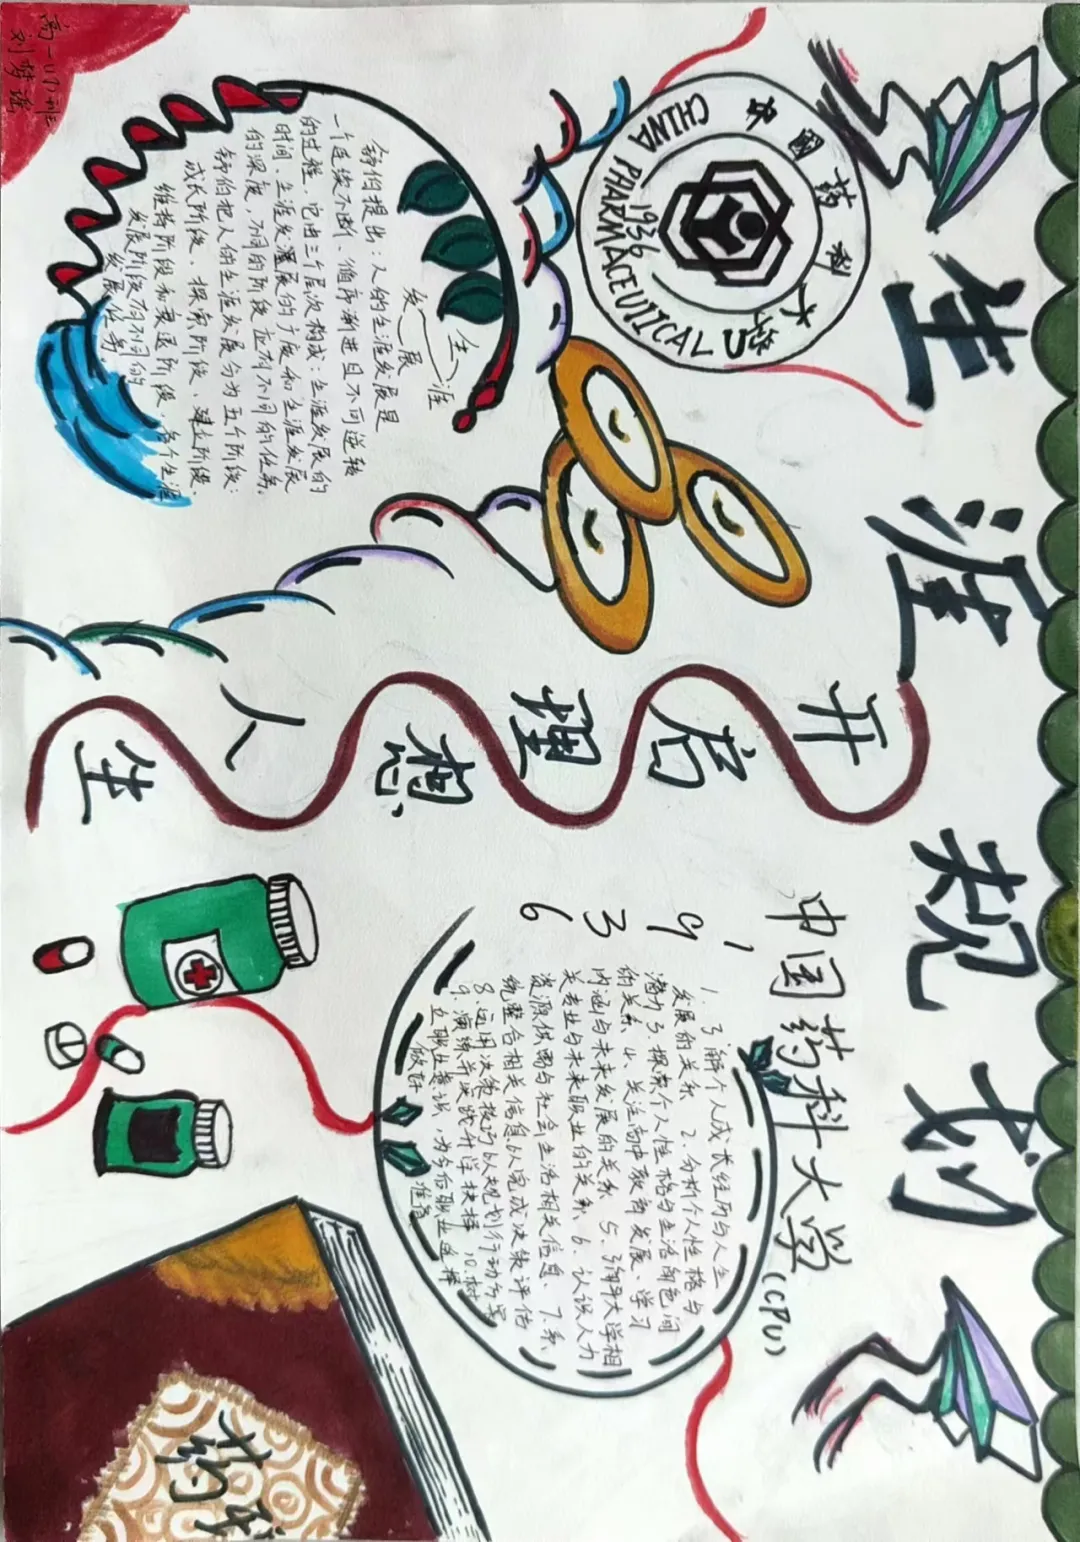 生涯规划
中國药科大學
CHINA PHARMACEUTICAL U
1936
开启理想人生
生涯
发展
舒伯提出：人的生涯发展是
一个连续不断、循序渐进且不可逆转
的过程，它由三个层次构成：生涯发展的
时间、生涯发展的广度和生涯发展
的深度，不同的阶段应有不同的任务。
舒伯把人的生涯发展分为五个阶段：
成长阶段、探索阶段、建立阶段、
维持阶段和衰退阶段，各个生涯
发展阶段有不同的
发展任务。
中国药科大学(CPU)
1936
1.了解个人成长经历与人生
发展的关系 2.分析个人性格与
潜力 3.探索个人性格与生活角色间
的关系 4.关注高中教育发展、学习
内涵与未来发展的关系 5.了解大学相
关专业与未来职业的关系 6.认识人力
资源供需与社会生活相关信息 7.系
统整合相关信息以完成决策评估
8.运用决策技巧以规划行动方案
9.演练并实践升学抉择，10.树
立职业意识，为今后职业选择
做好准备
药
高一(17)班
刘梦瑶